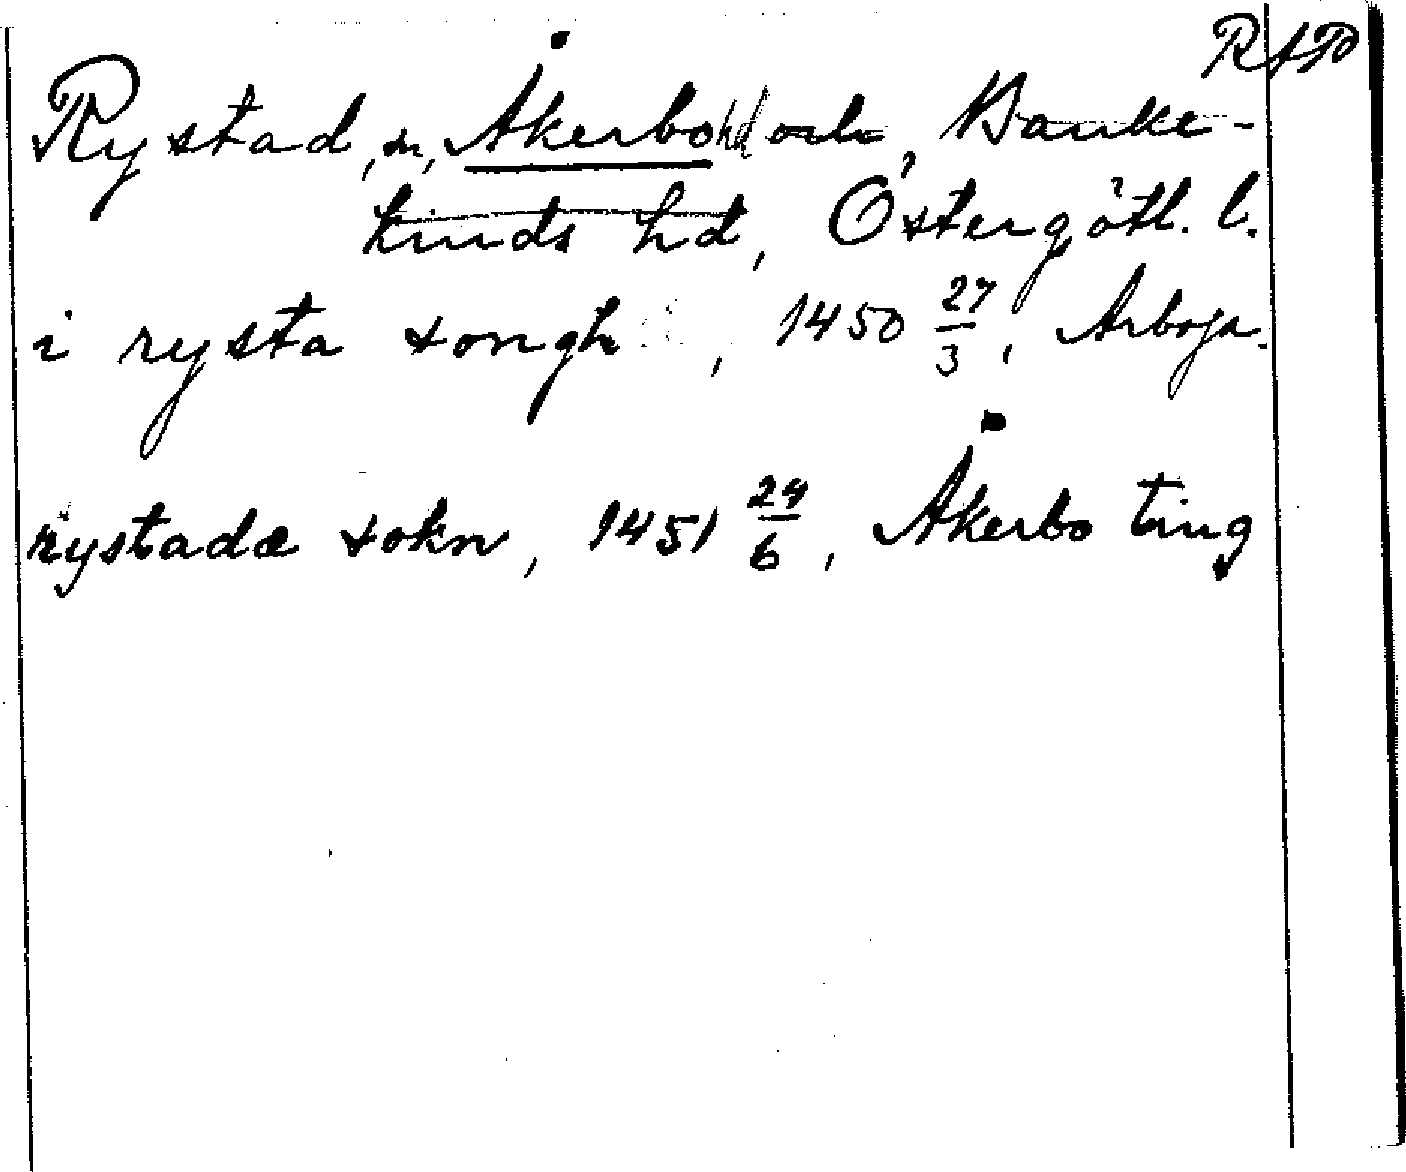 RAP
Rystad, sn, Åkerbo hd och Banke-
kinds hd, Östergötl. l.
i rysta songh, 1450 27/3, Arboga.
rystadæ sokn, 1451 24/6, Åkerbo ting